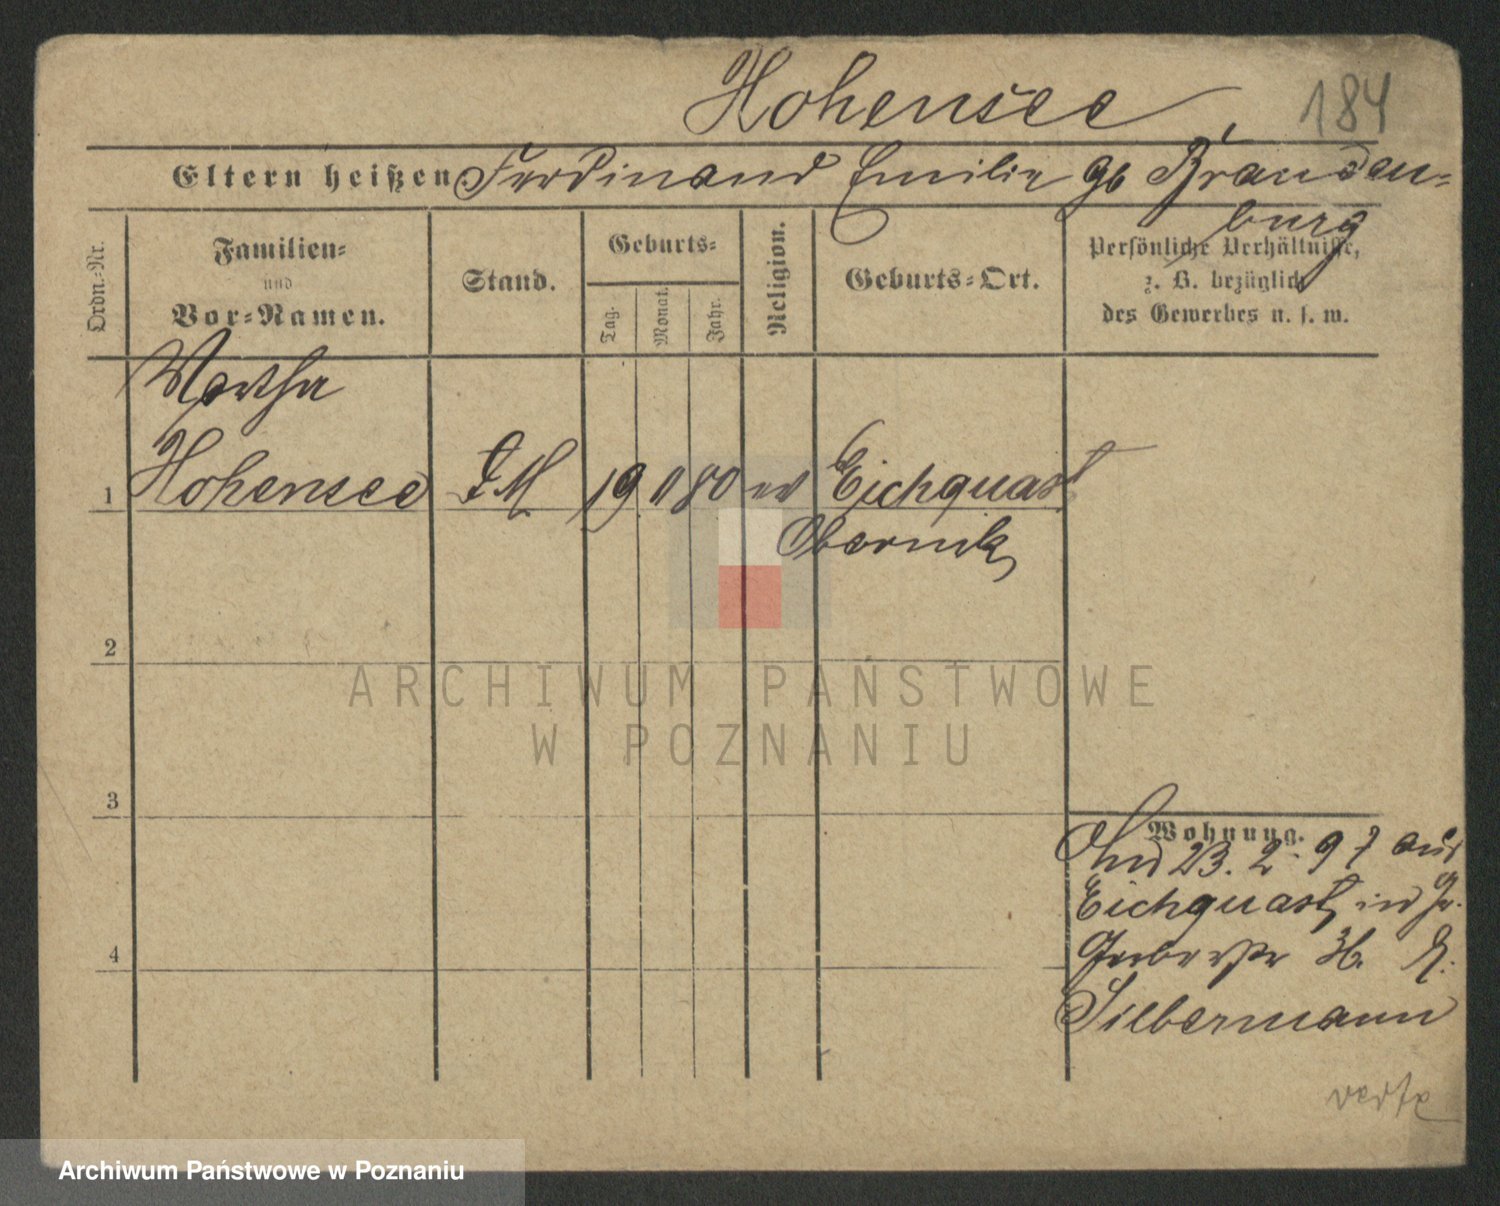 Hohensee
184
Eltern heißen Ferdinand Emilie gb Branden-
burg
Ordn.-Nr.
Familien-
und
Vor-Namen.
Stand.
Geburts-
Tag.
Monat.
Jahr.
Religion.
Geburts-Ort.
Persönliche Verhältnisse,
z. B. bezüglich
des Gewerbes u. s. w.
Martha
1 Hohensee D M 19 11 80 ev Eichquast
Obornik
2
3
4
Wohnung.
23. 2. 97 aus
Eichquast in Gr.
Gerberstr 36.
Silbermann
verte
ARCHIWUM PAŃSTWOWE
W POZNANIU
Archiwum Państwowe w Poznaniu